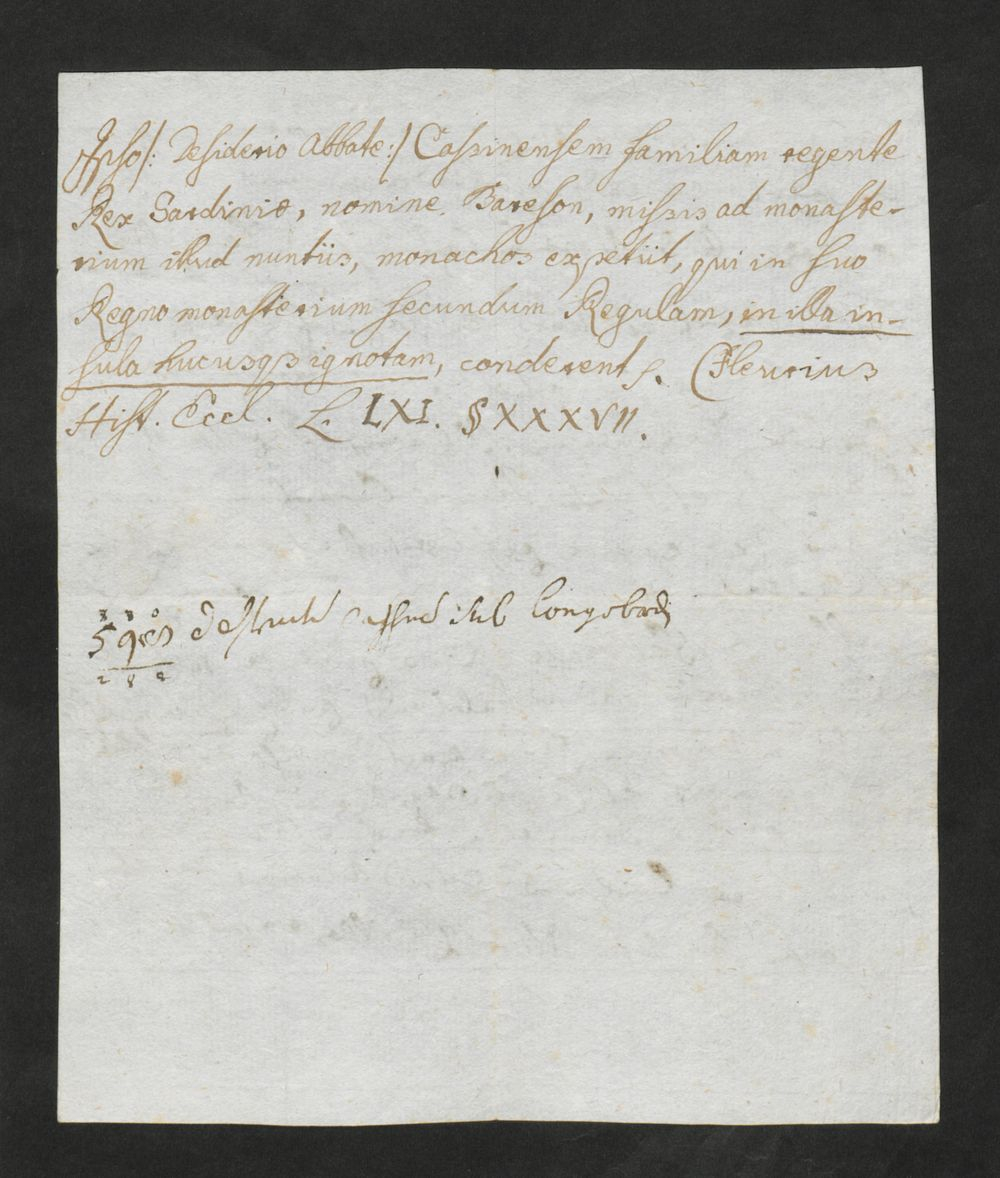 Ipso /: Desiderio Abbate :/ Cassinensem familiam regente
Rex Sardiniæ, nomine Bareson, missis ad monaste-
rium illud nuntiis, monachos expetiit, qui in suo
Regno monasterium secundum Regulam, in illa in-
sula hucusqs ignotam, conderent. Fleurius
Hist. Eccl. L. LXI. § XXXVII.
3 3 0
59
2 8 9